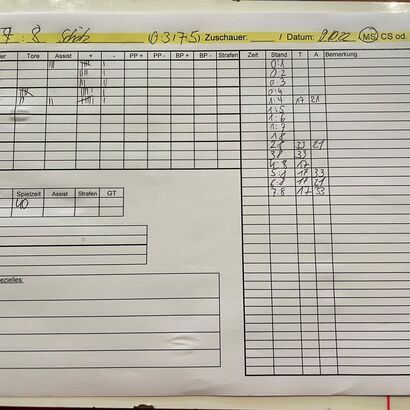 7 : 8 (3175) Zuschauer: / Datum: MS CS od.
Tore Assist + - PP + PP - BP + BP - Strafen Zeit Stand T A Bemerkung
0:1
0:2
0:3
0:4
1:4 17 21
1:5
1:6
1:7
1:8
2:8 33 21
3:8 33
4:8 17
5:8 17 33
6:8 17 21
7:8 17 33
Spielzeit Assist Strafen GT
40
ezielles: